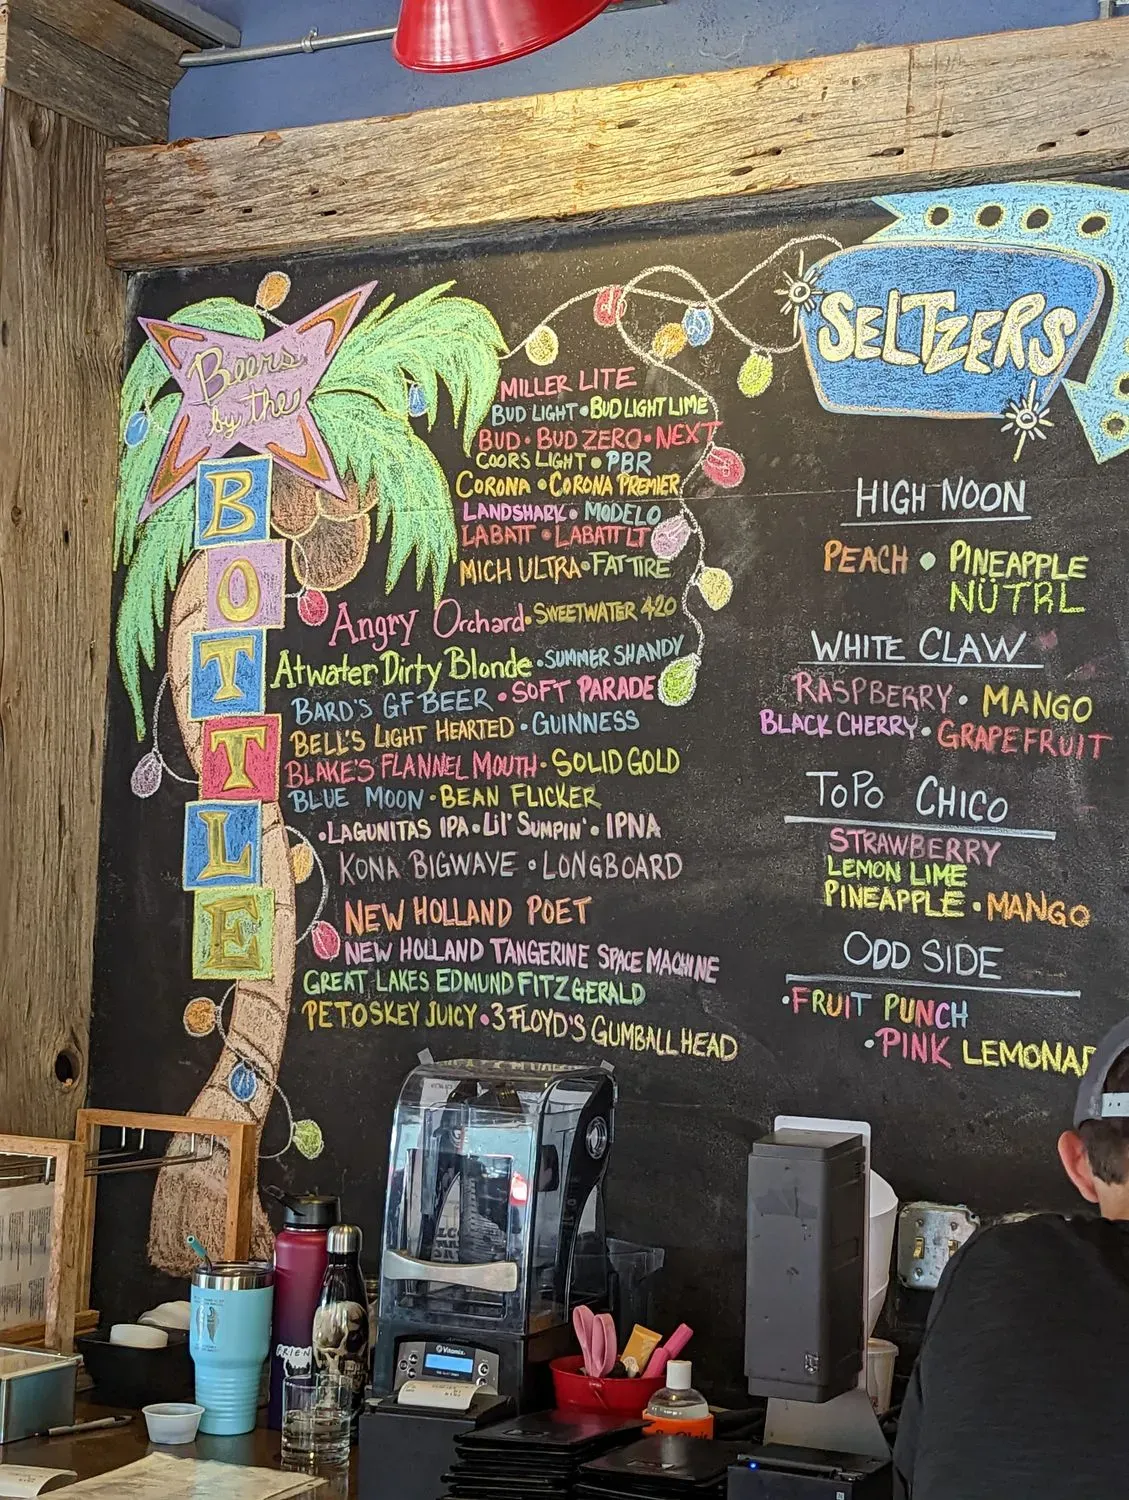 Beers
by the
BOTTLE
MILLER LITE
BUD LIGHT • BUD LIGHT LIME
BUD • BUD ZERO • NEXT
COORS LIGHT • PBR
CORONA • CORONA PREMIER
LANDSHARK • MODELO
LABATT • LABATT LT
MICH ULTRA • FAT TIRE
Angry Orchard • SWEETWATER 420
Atwater Dirty Blonde • SUMMER SHANDY
BARD'S GF BEER • SOFT PARADE
BELL'S LIGHT HEARTED • GUINNESS
BLAKE'S FLANNEL MOUTH • SOLID GOLD
BLUE MOON • BEAN FLICKER
• LAGUNITAS IPA • LIL' SUMPIN' • IPNA
KONA BIGWAVE • LONGBOARD
NEW HOLLAND POET
NEW HOLLAND TANGERINE SPACE MACHINE
GREAT LAKES EDMUND FITZGERALD
PETOSKEY JUICY • 3 FLOYD'S GUMBALL HEAD
SELTZERS
HIGH NOON
PEACH • PINEAPPLE
NÜTRL
WHITE CLAW
RASPBERRY • MANGO
BLACK CHERRY • GRAPEFRUIT
TOPO CHICO
STRAWBERRY
LEMON LIME
PINEAPPLE • MANGO
ODD SIDE
• FRUIT PUNCH
• PINK LEMONA
Vitamix